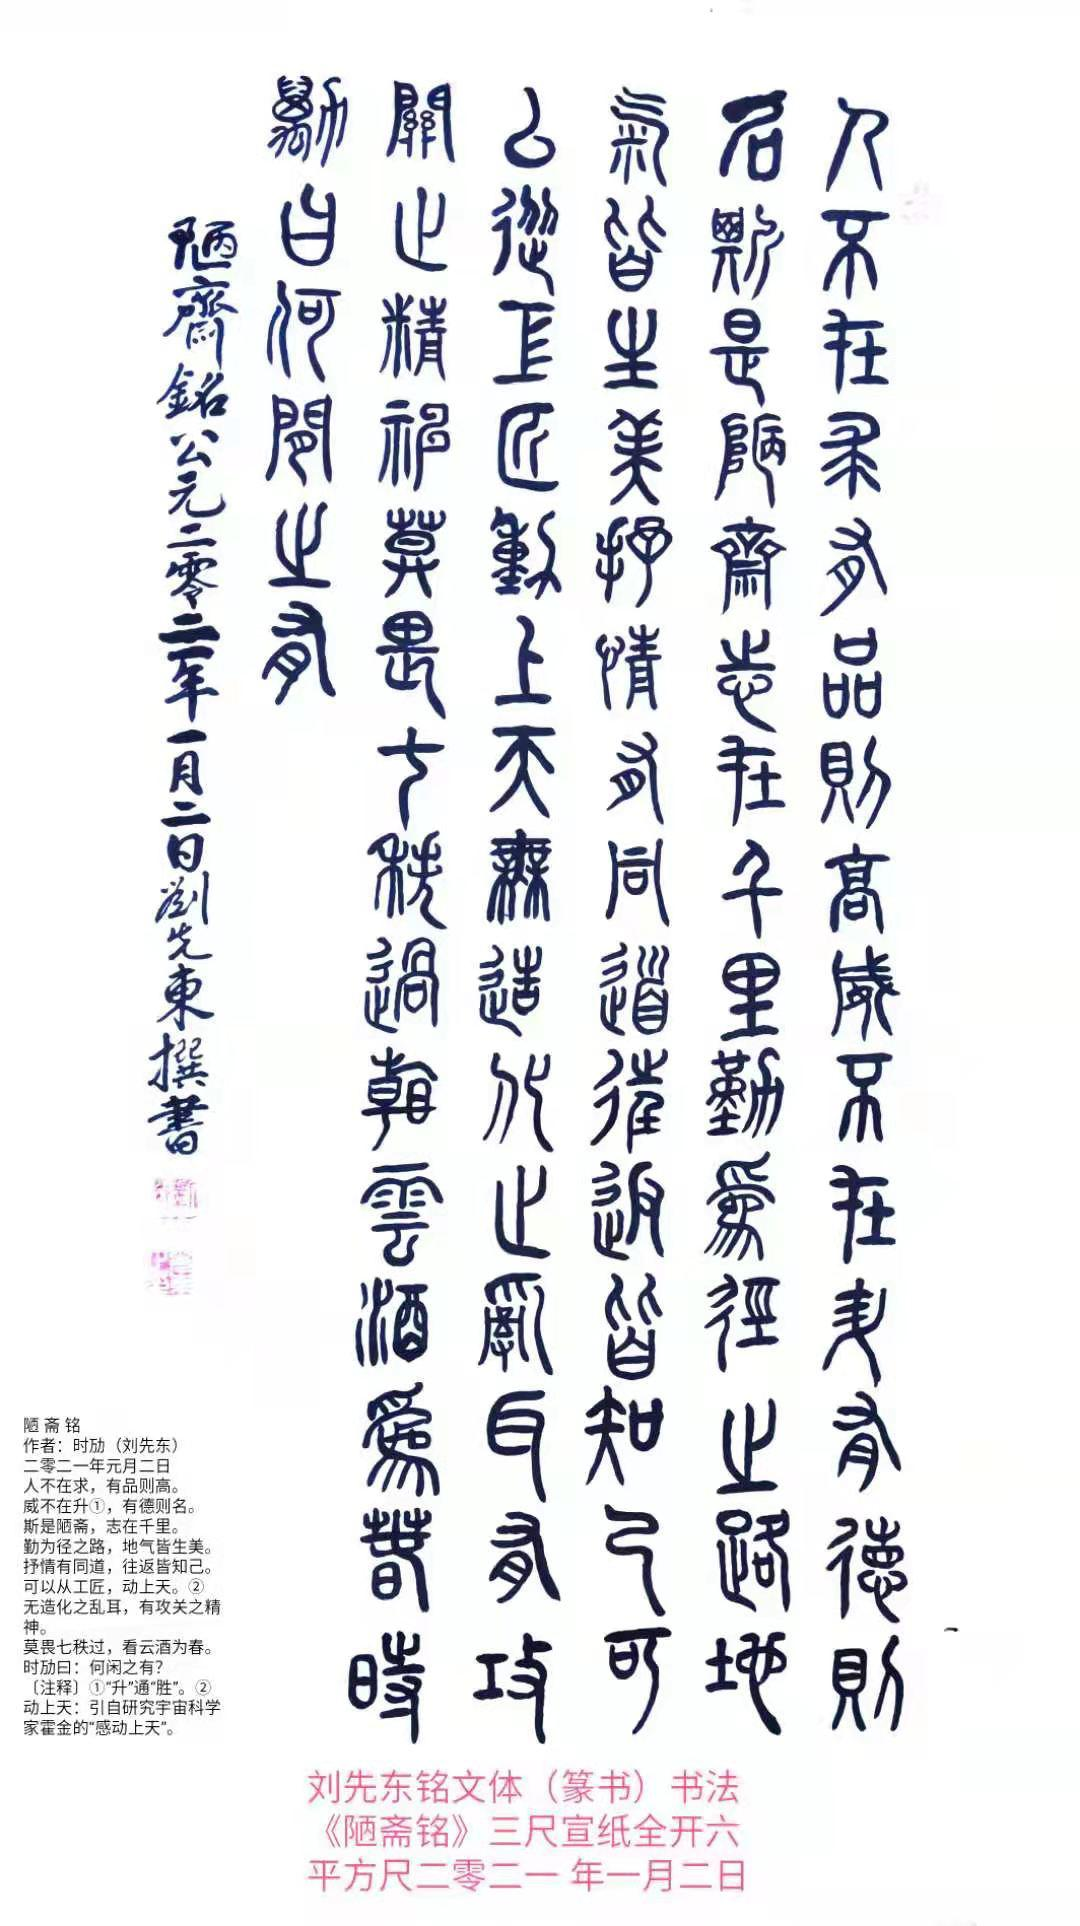 人不在求有品則高威不在升有德則
名斯是陋齋志在千里勤爲徑之路地
氣皆生美抒情有同道往返皆知己可
以從工匠動上天無造化之亂耳有攻
關之精神莫畏七秩過看雲酒爲春時
勱曰何閒之有
陋齋銘公元二零二一年一月二日劉先東撰書
陋 斋 铭
作者：时劢（刘先东）
二零二一年元月二日
人不在求，有品则高。
威不在升①，有德则名。
斯是陋斋，志在千里。
勤为径之路，地气皆生美。
抒情有同道，往返皆知己。
可以从工匠，动上天。②
无造化之乱耳，有攻关之精
神。
莫畏七秩过，看云酒为春。
时劢曰：何闲之有？
〔注释〕①“升”通“胜”。②
动上天：引自研究宇宙科学
家霍金的“感动上天”。
刘先东铭文体（篆书）书法
《陋斋铭》三尺宣纸全开六
平方尺二零二一 年一月二日